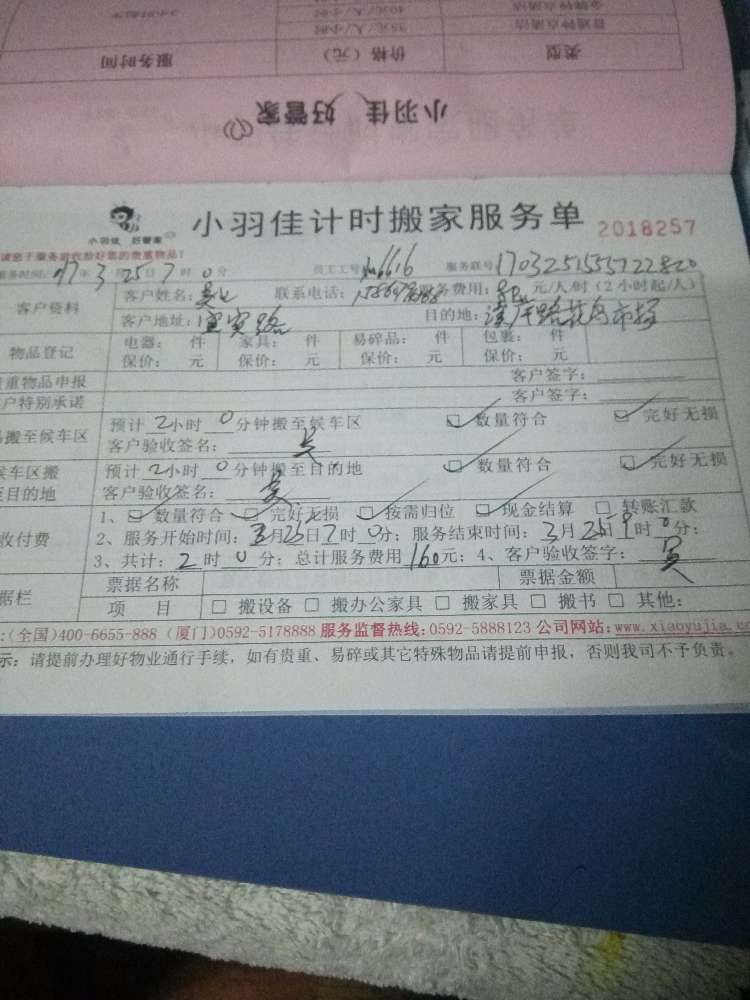 普通钟点清洁 35元/人/小时
类型 价格（元） 服务时间
小羽佳 好管家
小羽佳 好管家
小羽佳计时搬家服务单 2018257
请您于服务前收拾好您的贵重物品！
服务时间：17年3月25日7时0分 员工工号： 服务联号
客户资料 客户姓名： 联系电话： 服务费用： 元/人/时（2小时起/人）
客户地址： 目的地：
物品登记 电器： 件 家具： 件 易碎品： 件 包裹： 件
保价： 元 保价： 元 保价： 元 保价： 元
贵重物品申报 客户签字：
客户特别承诺 客户签字：
搬至候车区 预计2小时0分钟搬至候车区 数量符合 完好无损
客户验收签名：
候车区搬至目的地 预计2小时0分钟搬至目的地 数量符合 完好无损
客户验收签名：
收付费 1、数量符合 完好无损 按需归位 现金结算 转账汇款
2、服务开始时间：3月25日7时0分；服务结束时间：3月25日9时0分；
3、共计：2时0分；总计服务费用160元；4、客户验收签字：
据栏 票据名称 票据金额
项 目 搬设备 搬办公家具 搬家具 搬书 其他：
：(全国)400-6655-888 (厦门)0592-5178888 服务监督热线：0592-5888123 公司网站：www.xiaoyujia.c
示：请提前办理好物业通行手续，如有贵重、易碎或其它特殊物品请提前申报，否则我司不予负责。